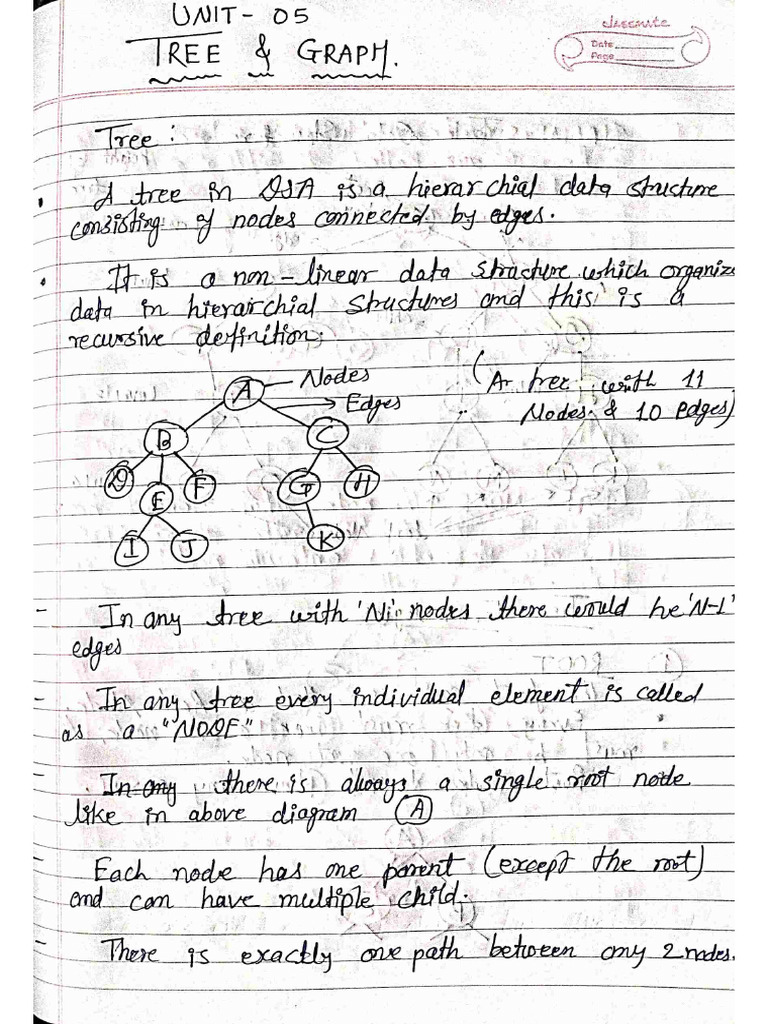 UNIT- 05
TREE & GRAPH.
classmate
Date
Page
Tree :
A tree in DSA is a hierarchial data structure
consisting of nodes connected by edges.
It is a non-linear data structure which organize
data in hierarchial structures and this is a
recursive definition.
A
Nodes
Edges
(A tree with 11
Nodes & 10 edges)
B
C
D
E
F
G
H
I
J
K
- In any tree with 'N' nodes there would be 'N-1'
edges
- In any tree every individual element is called
as a "NODE"
- In any there is always a single root node
like in above diagram (A)
- Each node has one parent (except the root)
and can have multiple child.
- There is exactly one path between any 2 nodes.